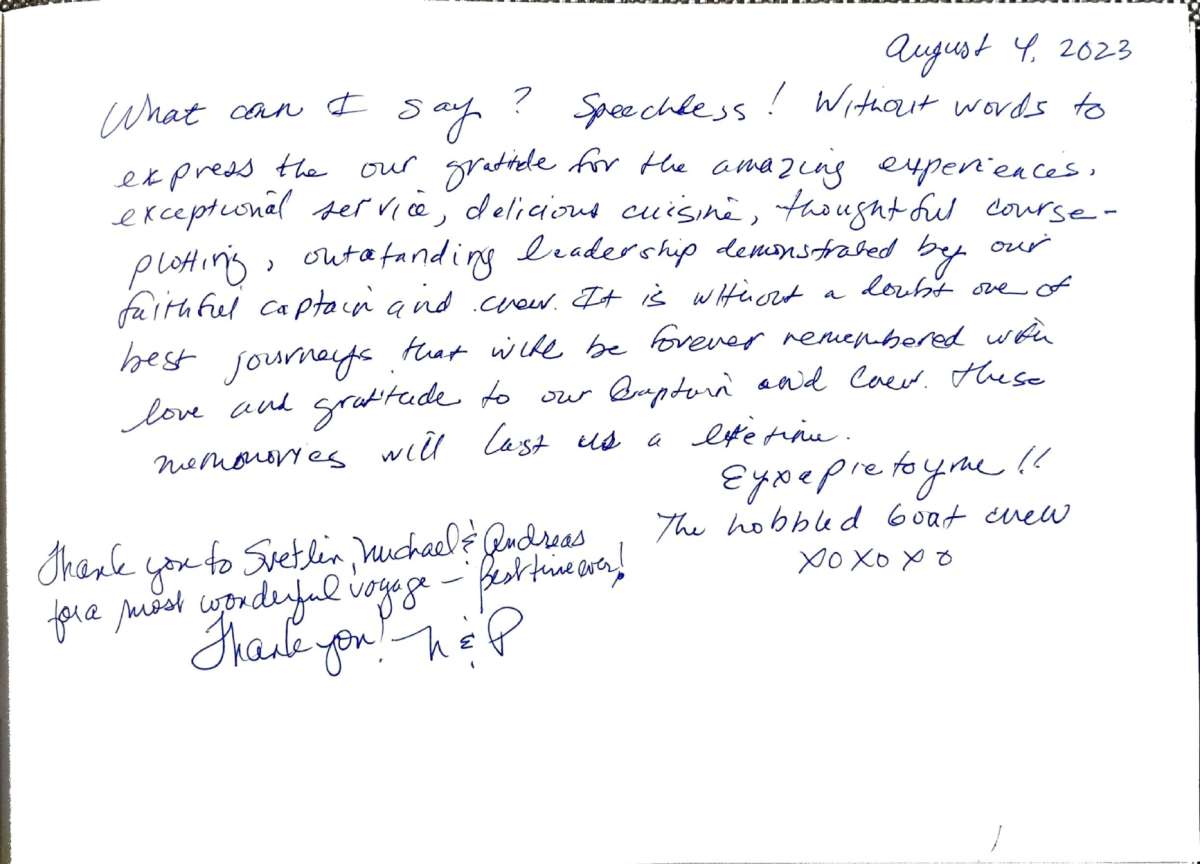 August 4, 2023
What can I say? Speechless! Without words to
express the our gratitde for the amazing experiences,
exceptional service, delicious cuisine, thoughtful course-
plotting, outstanding leadership demonstrated by our
faithful captain and crew. It is without a doubt one of
best journeys that will be forever remembered with
love and gratitude to our Captain and Crew. These
memonories will last us a lifetime.
Eyxapietoyme!!
The hobbled Goat crew
xoxoxo
Thank you to Svetlin, Michael & Andreas
for a most wonderful voyage – Best time ever!
Thank you! – N & P